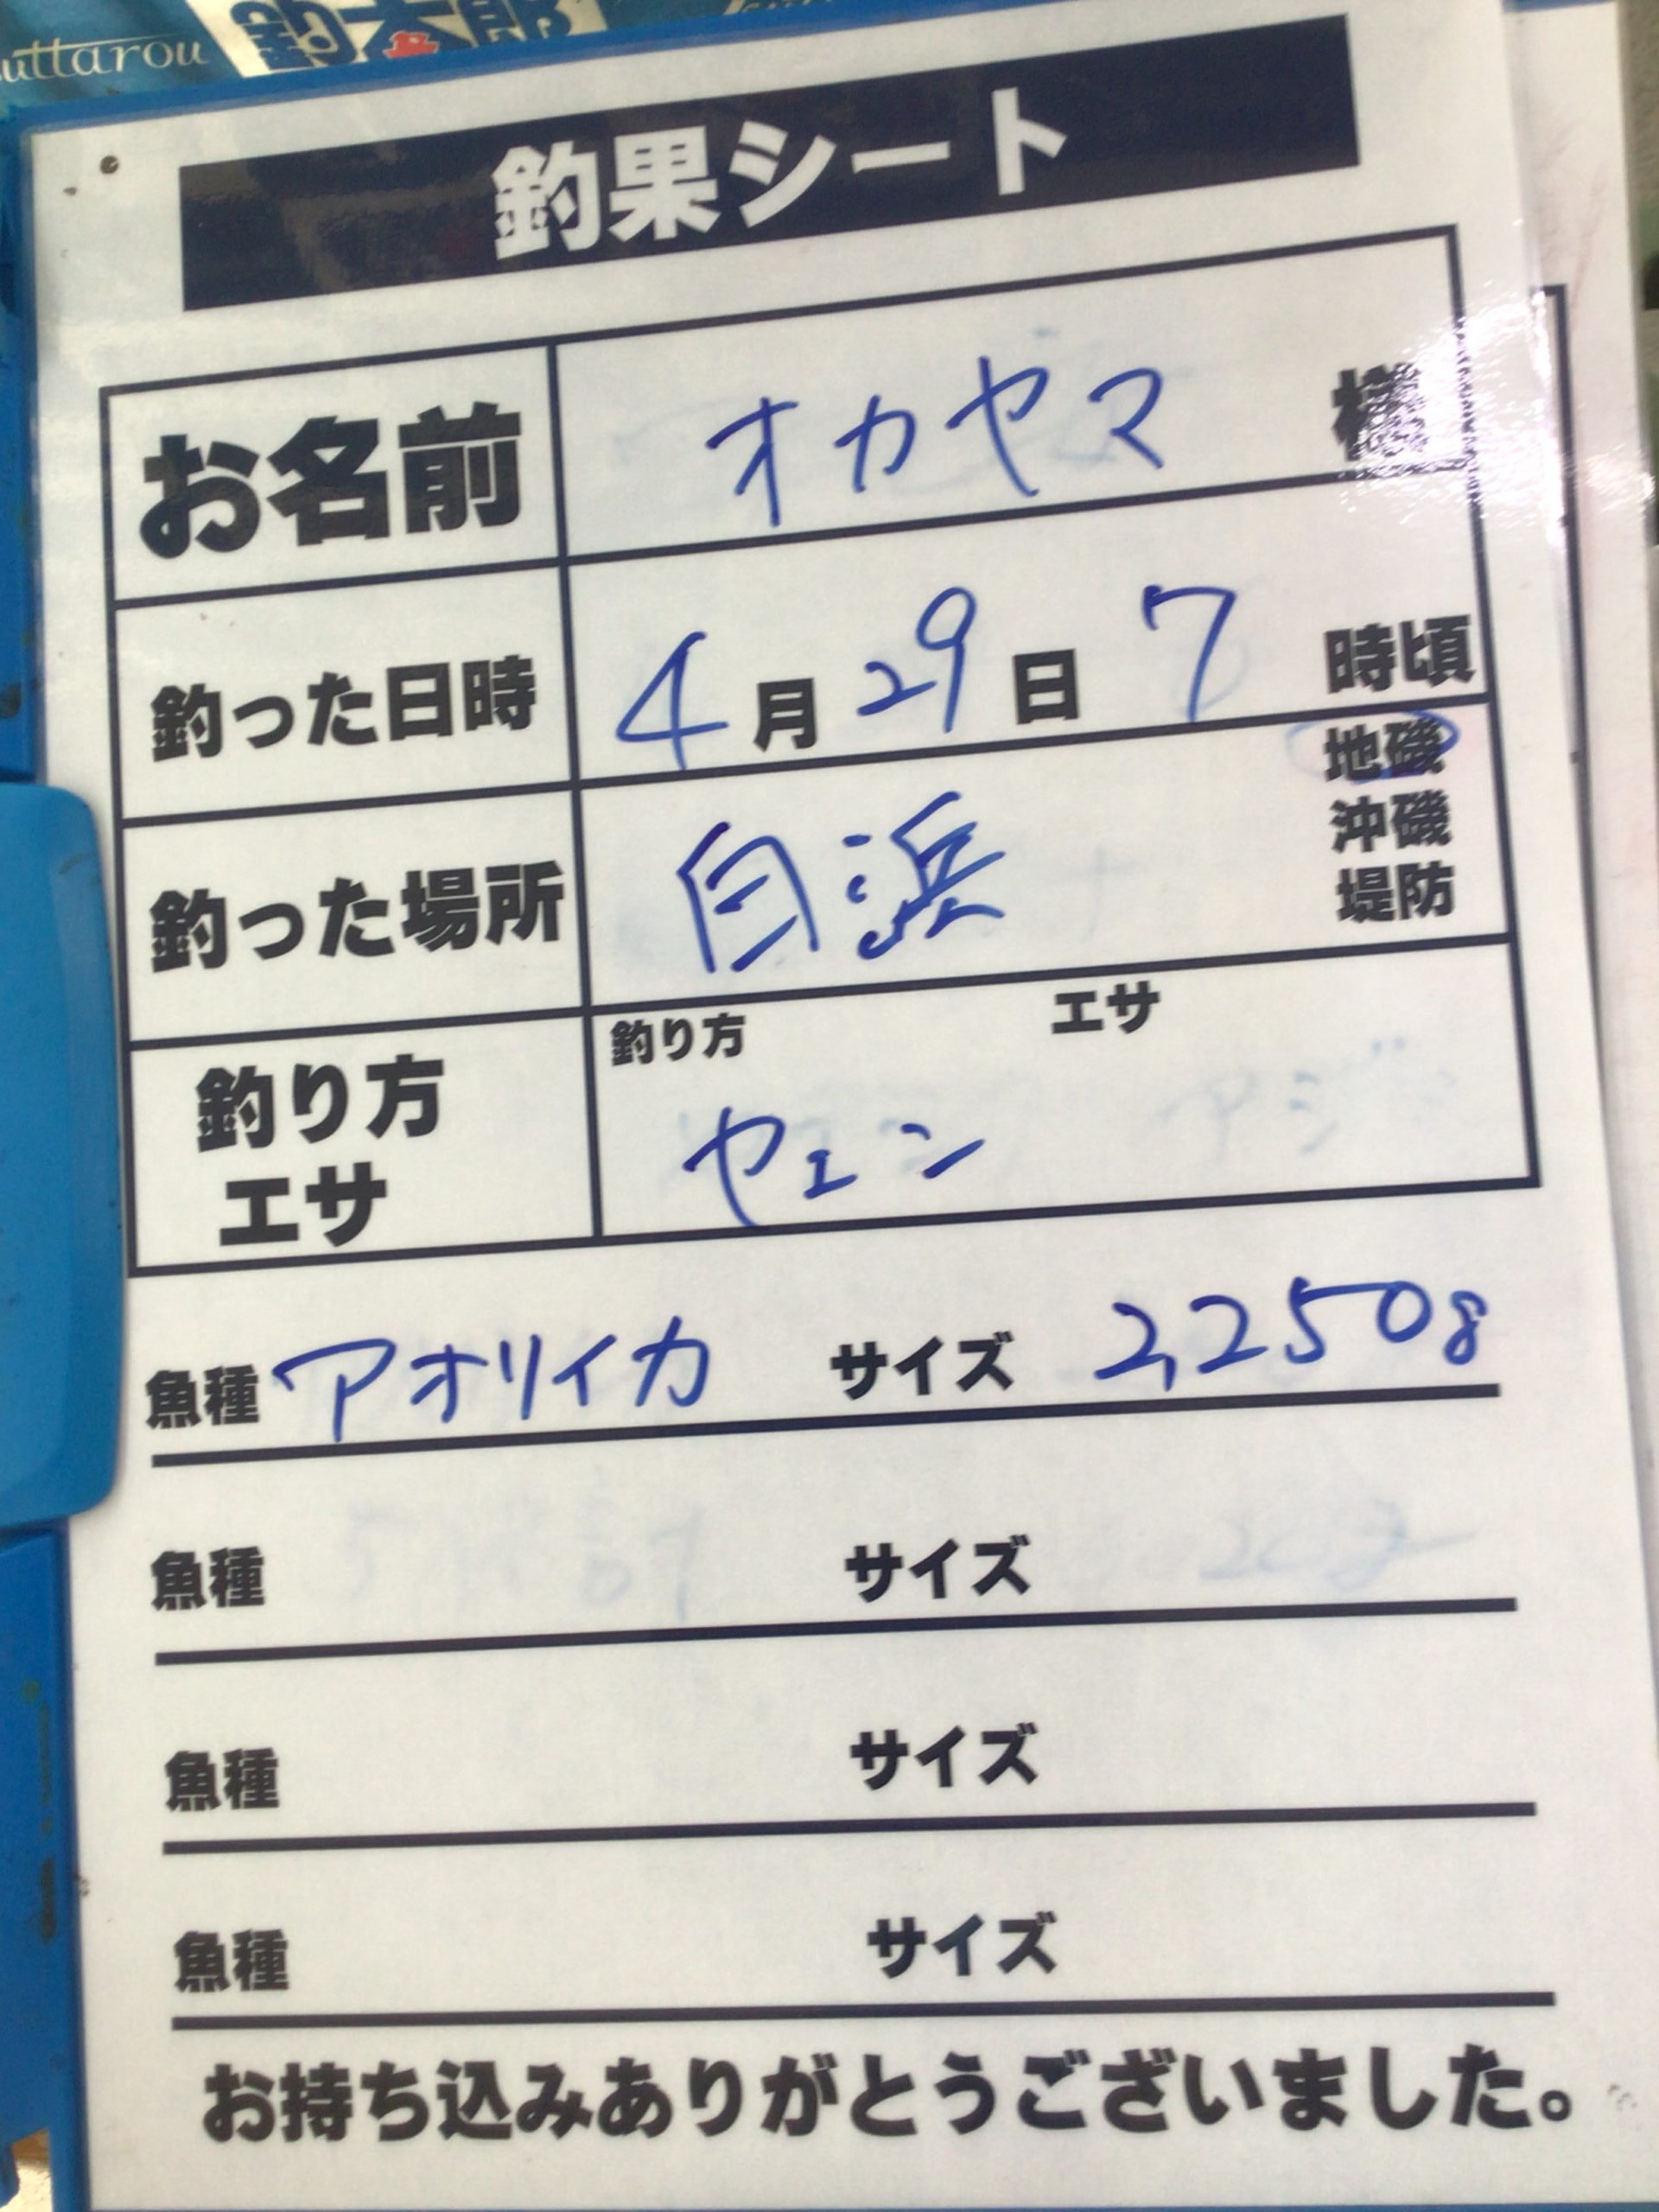 uttarou 釣太郎
釣果シート
お名前 オカヤマ 様
釣った日時 4月29日 7時頃
釣った場所 白浜 地磯
沖磯
堤防
釣り方 エサ
釣り方 ヤエン
エサ
魚種 アオリイカ サイズ 2,250g
魚種 サイズ
魚種 サイズ
魚種 サイズ
お持ち込みありがとうございました。